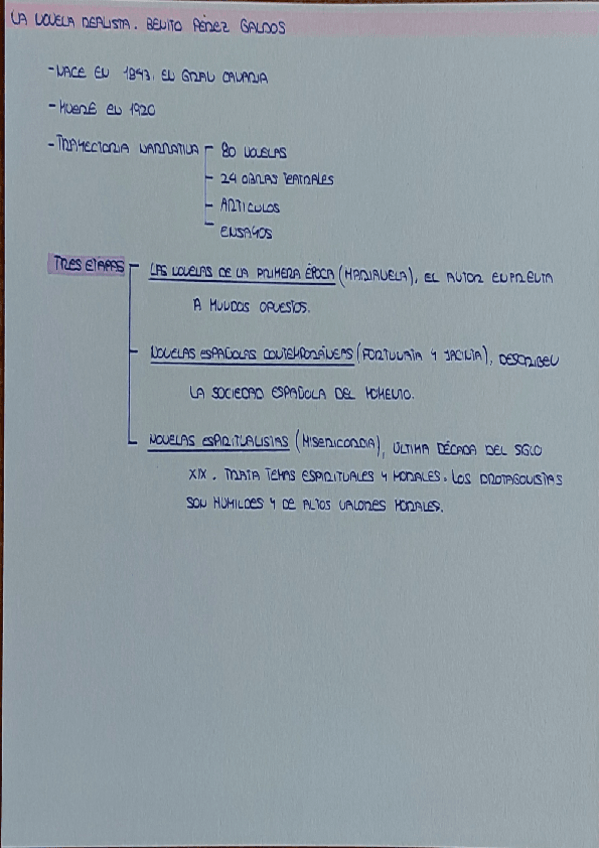 LA NOVELA REALISTA. BENITO PÉREZ GALDOS
- NACE EN 1843, EN GRAN CANARIA
- MUERE EN 1920
- TRAYECTORIA NARRATIVA - 80 NOVELAS
- 24 OBRAS TEATRALES
- ARTICULOS
- ENSAYOS
TRES ETAPAS - LAS NOVELAS DE LA PRIMERA ÉPOCA (MARIANELA), EL AUTOR ENFRENTA
A MUNDOS OPUESTOS.
- NOVELAS ESPAÑOLAS CONTEMPORÁNEAS (FORTUNATA Y JACINTA), DESCRIBEN
LA SOCIEDAD ESPAÑOLA DEL MOMENTO.
- NOVELAS ESPIRITUALISTAS (MISERICORDIA), ÚLTIMA DÉCADA DEL SIGLO
XIX. TRATA TEMAS ESPIRITUALES Y MORALES. LOS PROTAGONISTAS
SON HUMILDES Y DE ALTOS VALORES MORALES.